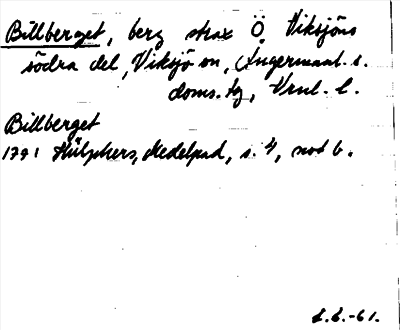 Billberget, berg strax Ö. Viksjöns
södra del, Viksjö sn, Ångermanl. s.
doms. tg, Vrnl. l.
Billberget
1791 Hülphers, Medelpad, s. 4, not b.
L.L.-61.